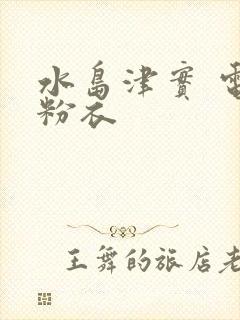 水島津實 電
粉衣
王舞的旅店老